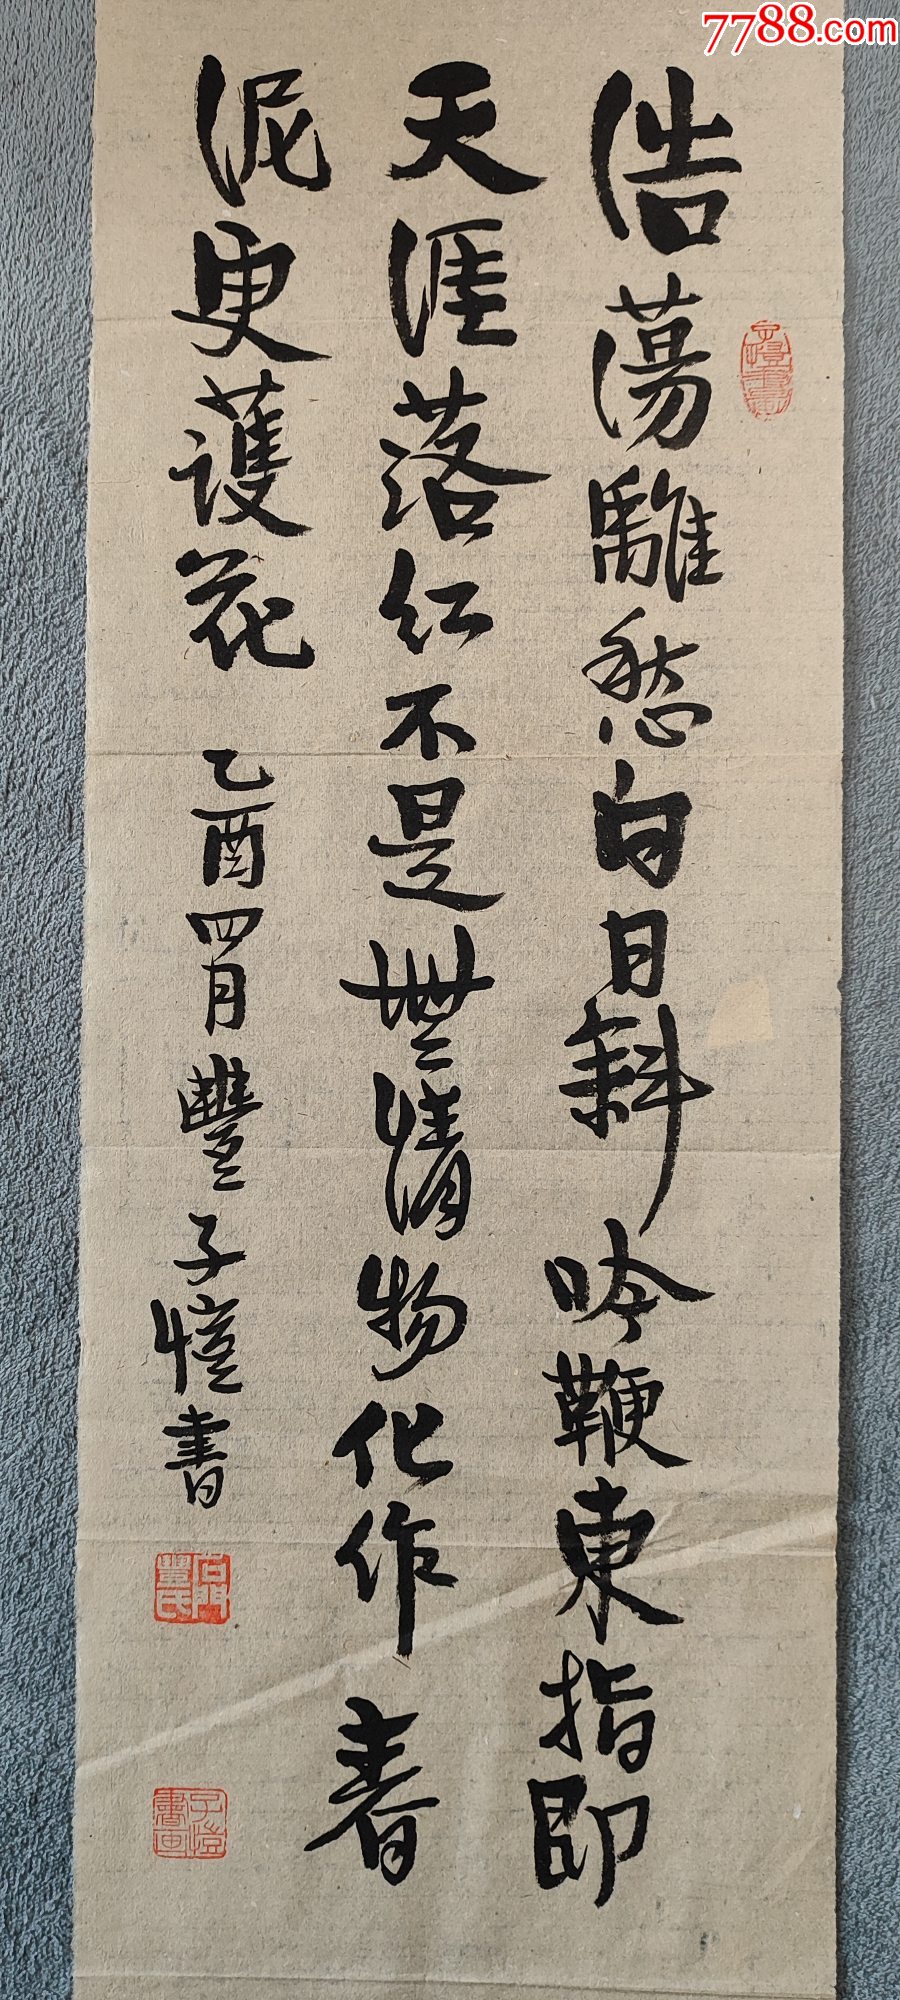 7788.com
浩蕩離愁白日斜吟鞭東指即
天涯落红不是無情物化作春
泥更護花
乙酉四月豐子愷書
石門豐氏
子愷書畫